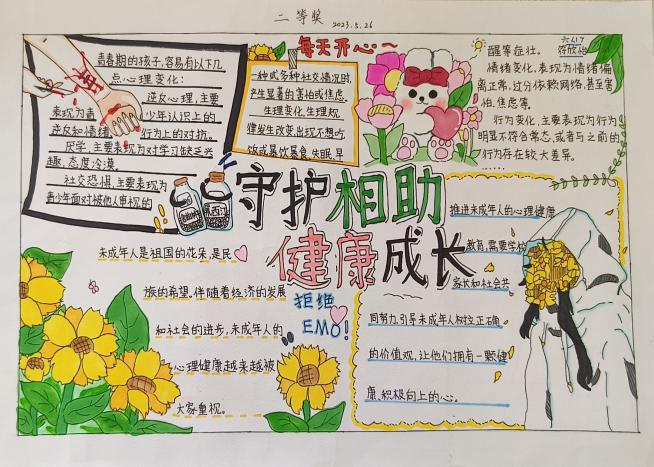 二等奖
2023.5.26
六(1)
青春期的孩子,容易有以下几
点心理变化:
逆反心理,主要
表现为青少年认识上的
逆反知情绪行为上的对抗。
厌学,主要表现为对学习缺乏兴
趣、态度冷漠。
社交恐惧,主要表现为
青少年面对被他人审视的
每天开心~
一种或多种社交情况时,
产生显著的害怕或焦虑。
生理变化,生理规
律发生改变,出现不想吃
饭或暴饮暴食,失眠,早
醒等症状。
情绪变化,表现为情绪偏
离正常,过分依赖网络,甚至害
怕、焦虑等。
行为变化,主要表现为行为
明显不符合常态,或者与之前的
行为存在较大差异。
……
守护相助
健康成长
未成年人是祖国的花朵,是民
族的希望。伴随着经济的发展
和社会的进步,未成年人的
心理健康越来越被
大家重视。
拒绝
EMO!
推进未成年人的心理健康
教育,需要学校
家长和社会共
同努力,引导未成年人树立正确
的价值观,让他们拥有一颗健
康、积极向上的心。